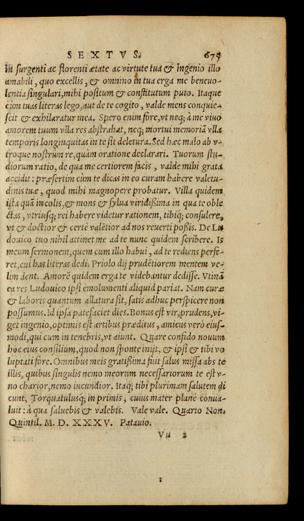 SEXTVS. 679
in surgenti ac florenti ætate ac virtute tua & ingenio illo
amabili, quo excellis, & omnino in tua erga me beneuo-
lentia singulari, mihi positum & constitutum puto. Itaque
cùm tuas literas lego, aut de te cogito, valde mens conquie-
scit & exhilaratur mea. Spero enim fore, vt neq; à me viuo
amorem tuum vlla res abstrahat, neq; mortui memoriã vlla
temporis longinquitas in te sit deletura. Sed hæc malo ab v-
troque nostrum re, quàm oratione declarari. Tuorum stu-
diorum ratio, de qua me certiorem facis, valde mihi grata
accidit: præsertim cùm te dicas in eo curam habere valetu-
dinis tuæ, quod mihi magnopere probatur. Villa quidem
ista quã incolis, & mons & sylua viridissima in qua te oble
ctas, vtriusq; rei habere videtur rationem, tibiq; consulere,
vt & doctior & certè valẽtior ad nos reuerti possis. De Lu
douico tuo nihil attinet me ad te nunc quidem scribere. Is
meum sermonem, quem cum illo habui, ad te reduens perfe-
ret, cui has literas dedi. Priolo dij prudẽtiorem mentem ve-
lim dent. Amorẽ quidem erga te videbantur dedisse. Vtinã
ea res Ludouico ipsi emolumenti aliquid pariat. Nam curæ
& laboris quantum allatura sit, satis adhuc perspicere non
possumus. Id ipsa patefaciet dies. Bonus est vir, prudens, vi-
get ingenio, optimis est artibus præditus, amicus verò eius-
modi, qui cum in tenebris, vt aiunt. Quare confido nouum
hoc eius consilium, quod non sponte inijt, & ipsi & tibi vo
luptati fore. Omnibus meis gratissima fuit salus missa abs te
illis, quibus singulis nemo meorum necessariorum te est v-
no charior, nemo iucundior. Itaq; tibi plurimam salutem di
cunt, Torquatulusq; in primis, cuius mater planè conua-
luit: à qua saluebis & valebis. Vale vale. Quarto Non.
Quintil. M. D. XXXV. Patauio.
Vu 2